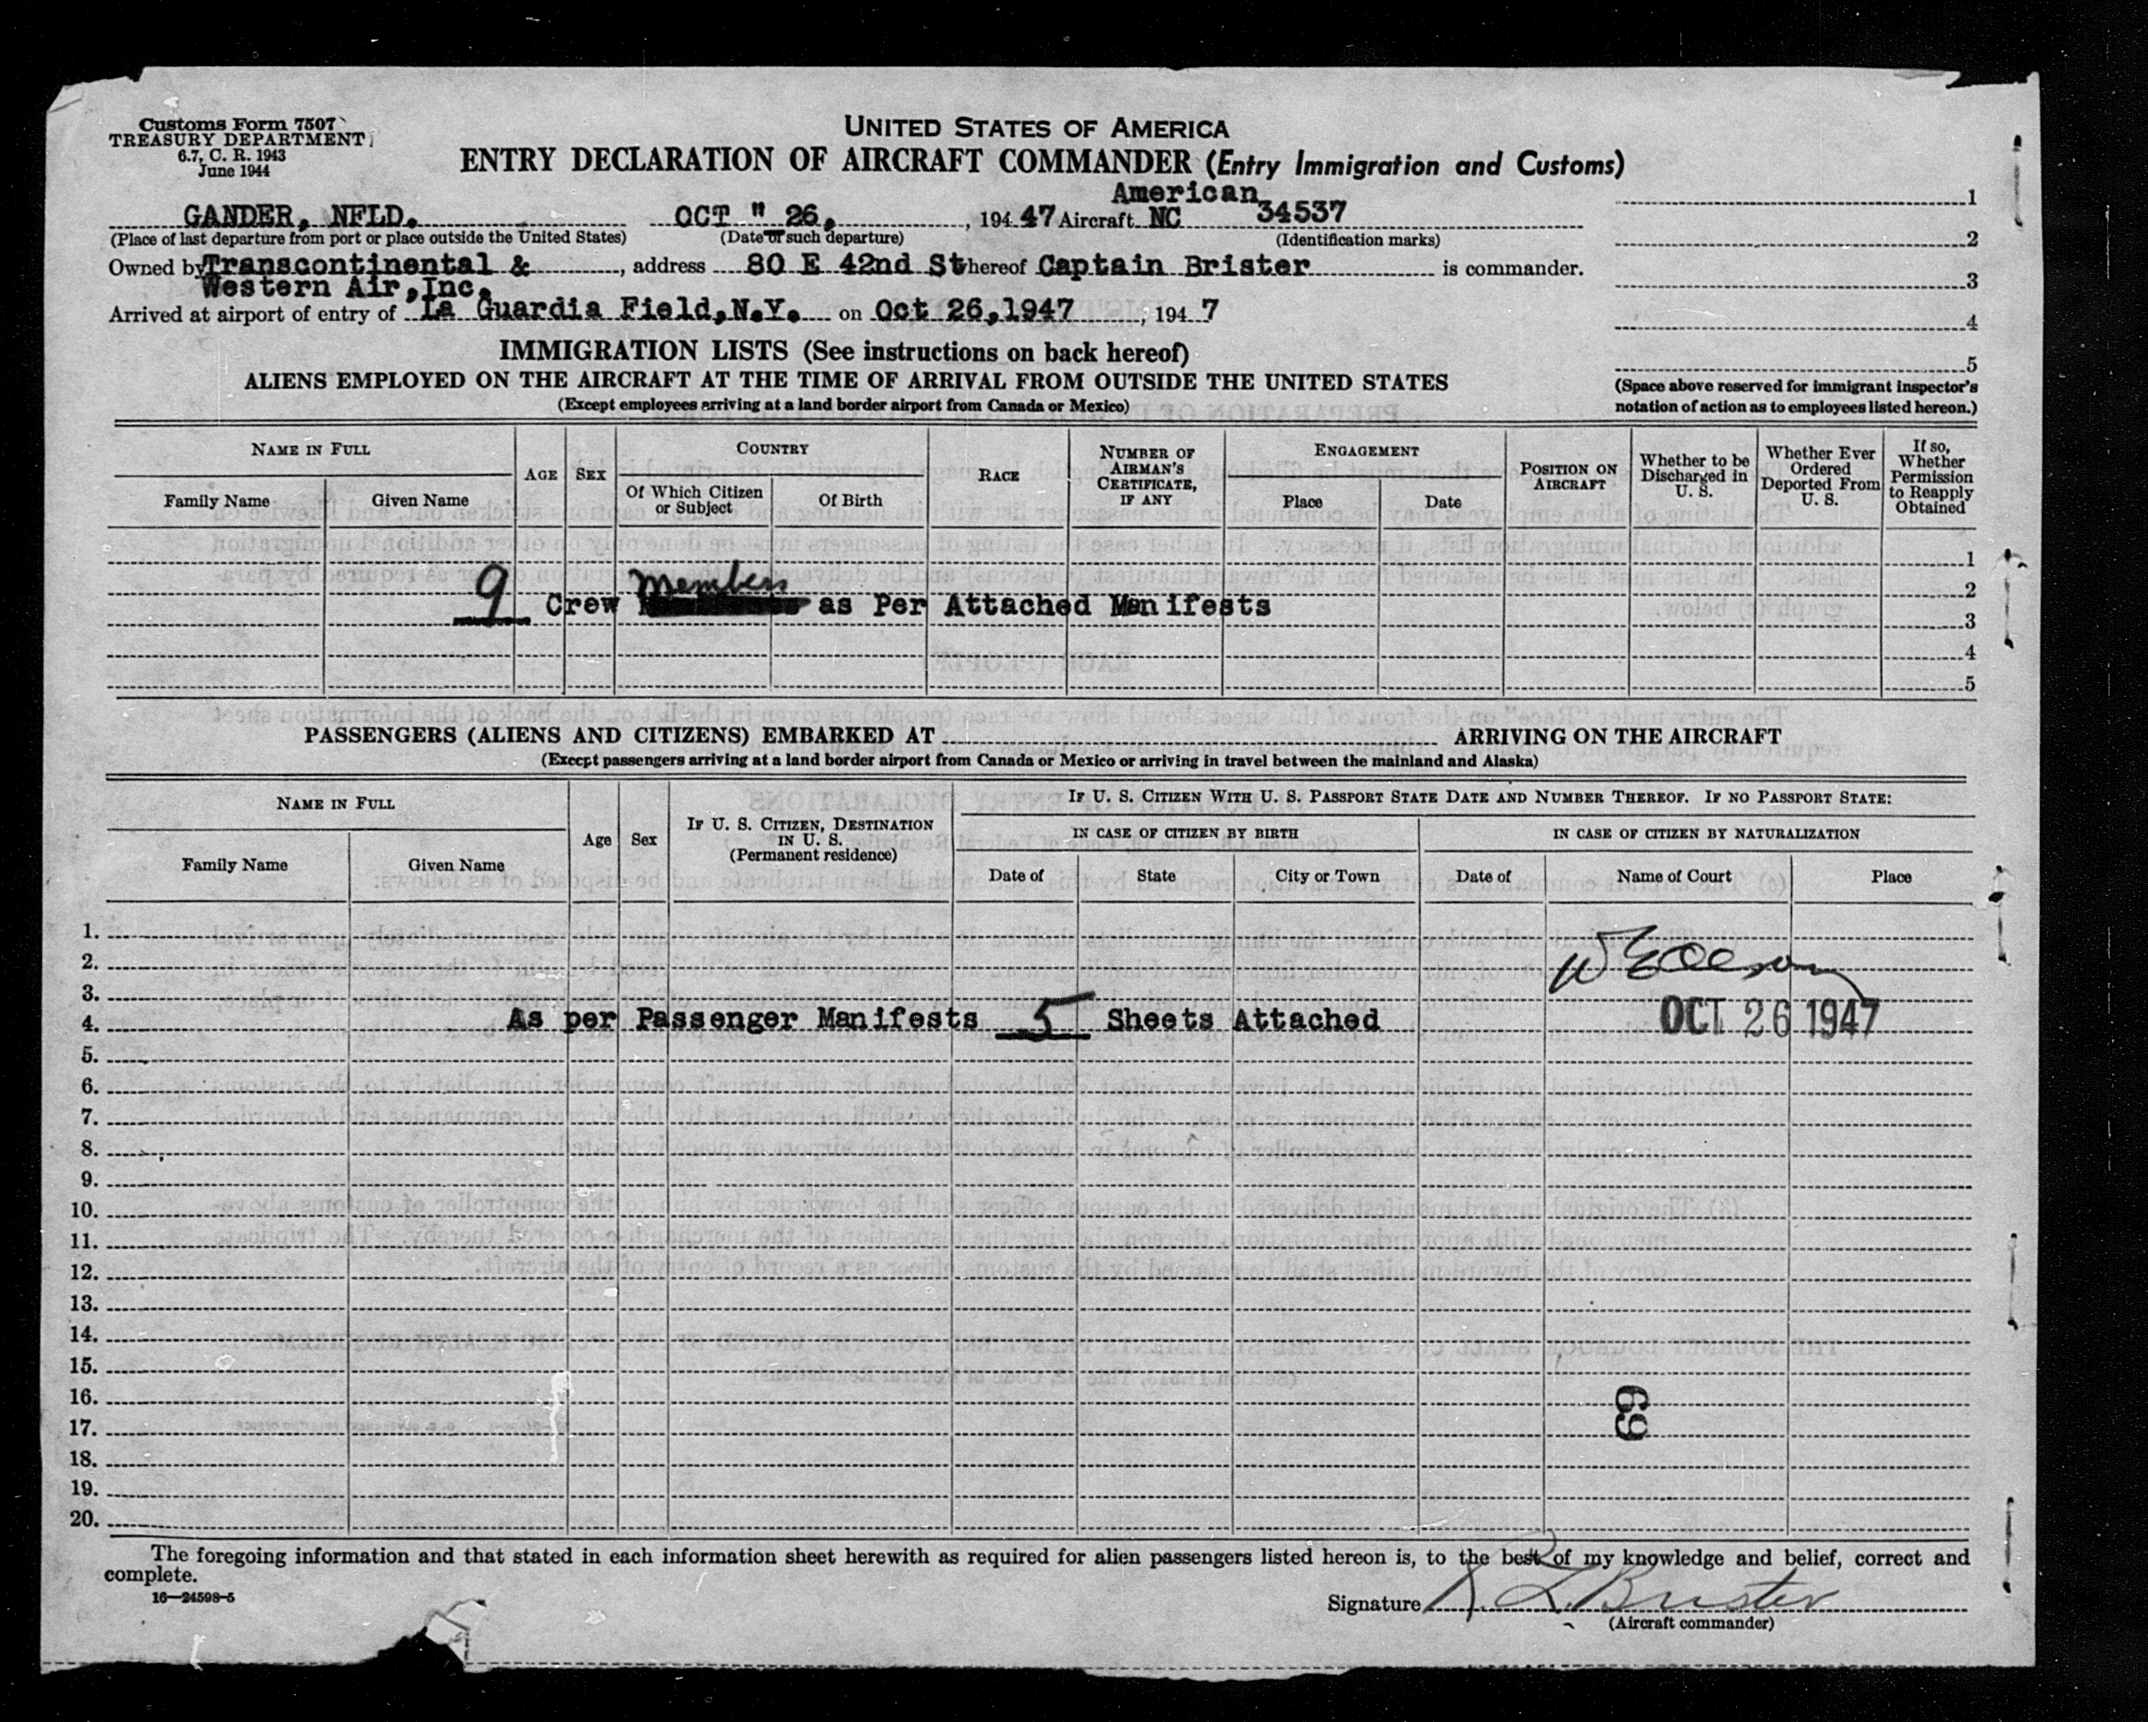 Customs Form 7507
TREASURY DEPARTMENT
6.7, C. R. 1943
June 1944
UNITED STATES OF AMERICA
ENTRY DECLARATION OF AIRCRAFT COMMANDER (Entry Immigration and Customs)
American
GANDER, NFLD. OCT " 26, , 194 47 Aircraft NC 34537
(Place of last departure from port or place outside the United States) (Date of such departure) (Identification marks)
Owned by Transcontinental & , address 80 E 42nd St hereof Captain Brister is commander.
Western Air,Inc.
Arrived at airport of entry of La Guardia Field,N.Y. on Oct 26,1947 , 194 7
1
2
3
4
5
(Space above reserved for immigrant inspector's
notation of action as to employees listed hereon.)
IMMIGRATION LISTS (See instructions on back hereof)
ALIENS EMPLOYED ON THE AIRCRAFT AT THE TIME OF ARRIVAL FROM OUTSIDE THE UNITED STATES
(Except employees arriving at a land border airport from Canada or Mexico)
NAME IN FULL
Family Name Given Name
AGE SEX
COUNTRY
Of Which Citizen or Subject Of Birth
RACE
NUMBER OF AIRMAN'S CERTIFICATE, IF ANY
ENGAGEMENT
Place Date
POSITION ON AIRCRAFT
Whether to be Discharged in U. S.
Whether Ever Ordered Deported From U. S.
If so, Whether Permission to Reapply Obtained
1
2
members
9 Crew as Per Attached Manifests
3
4
5
PASSENGERS (ALIENS AND CITIZENS) EMBARKED AT ARRIVING ON THE AIRCRAFT
(Except passengers arriving at a land border airport from Canada or Mexico or arriving in travel between the mainland and Alaska)
NAME IN FULL
Family Name Given Name
Age Sex
IF U. S. CITIZEN, DESTINATION IN U. S. (Permanent residence)
IF U. S. CITIZEN WITH U. S. PASSPORT STATE DATE AND NUMBER THEREOF. IF NO PASSPORT STATE:
IN CASE OF CITIZEN BY BIRTH IN CASE OF CITIZEN BY NATURALIZATION
Date of State City or Town Date of Name of Court Place
1.
2.
3.
4. As per Passenger Manifests 5 Sheets Attached OCT 26 1947
5.
6.
7.
8.
9.
10.
11.
12.
13.
14.
15.
16.
69
17.
18.
19.
20.
The foregoing information and that stated in each information sheet herewith as required for alien passengers listed hereon is, to the best of my knowledge and belief, correct and
complete.
16—24598-5
Signature Brister
(Aircraft commander)